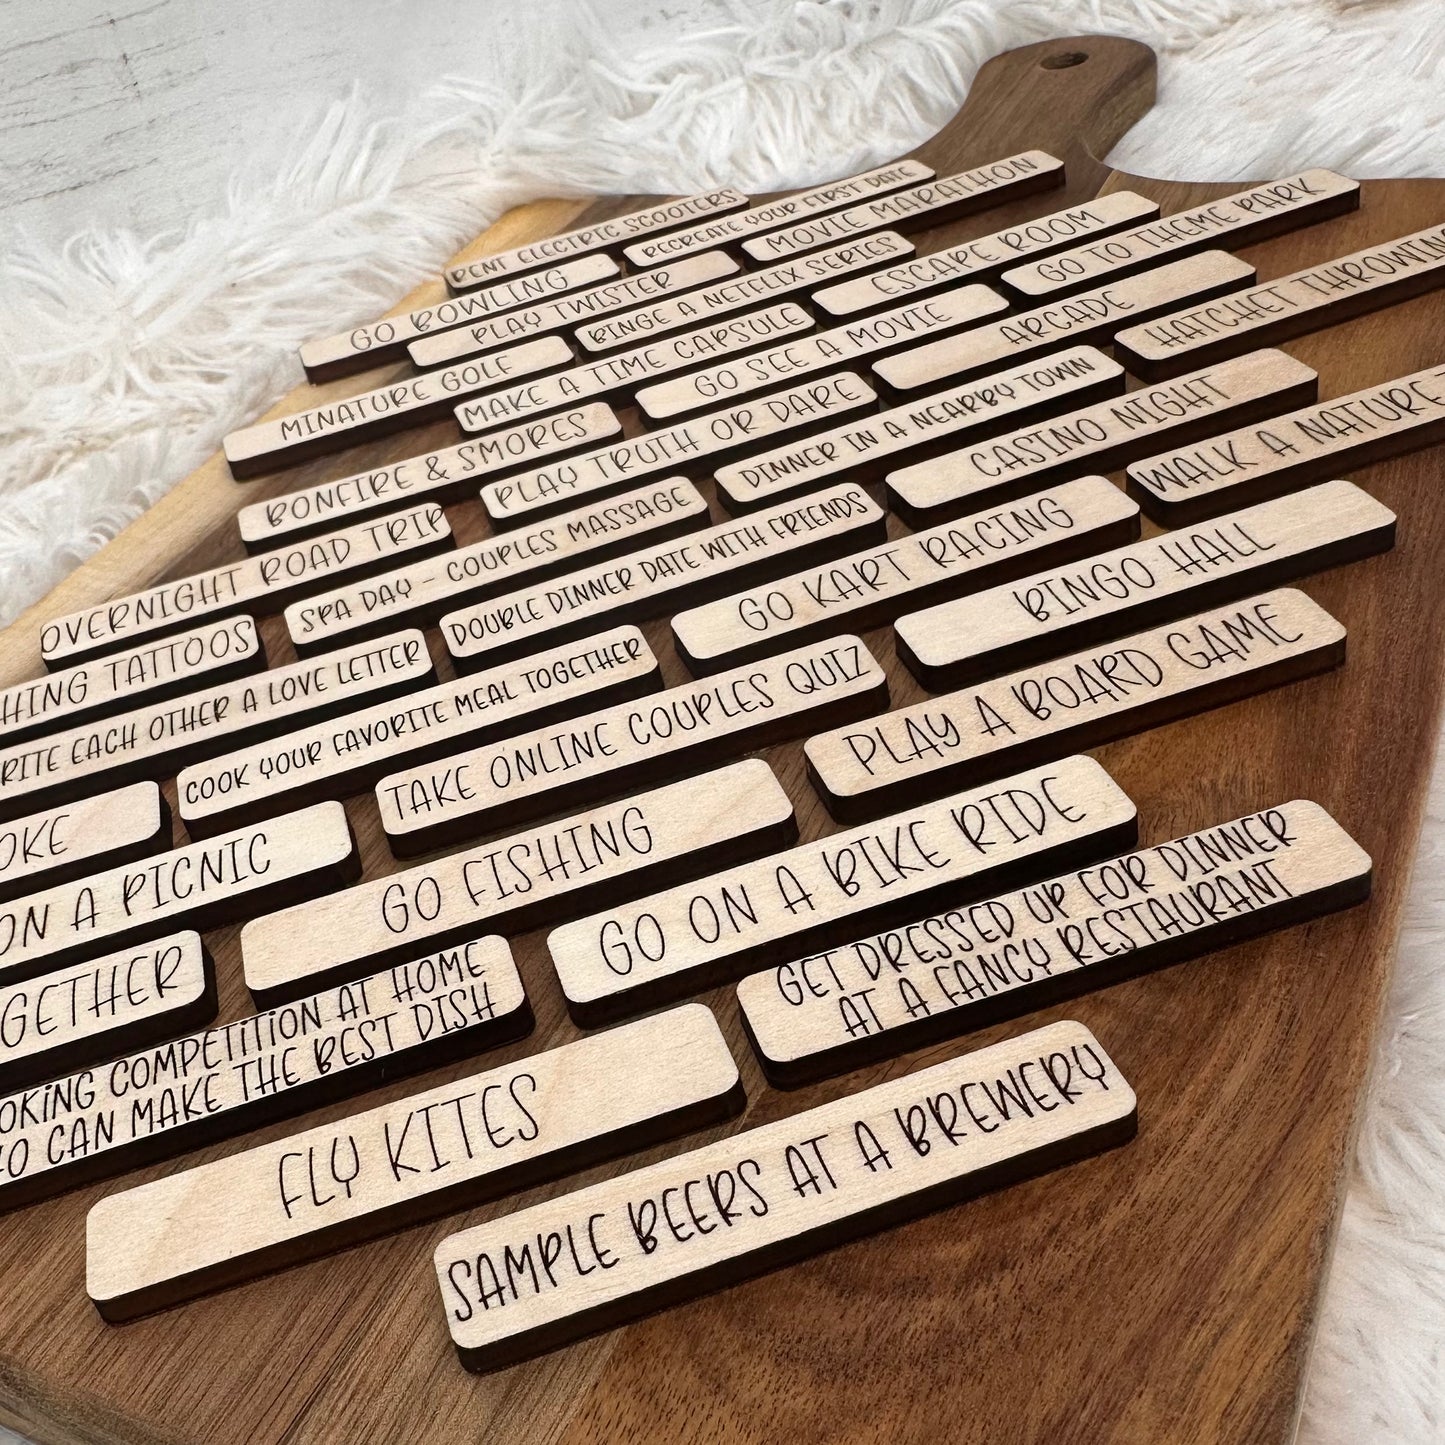 RENT ELECTRIC SCOOTERS
RECREATE YOUR FIRST DATE
MOVIE MARATHON
GO BOWLING
PLAY TWISTER
BINGE A NETFLIX SERIES
ESCAPE ROOM
GO TO THEME PARK
MINATURE GOLF
MAKE A TIME CAPSULE
GO SEE A MOVIE
ARCADE
HATCHET THROWING
BONFIRE & SMORES
PLAY TRUTH OR DARE
DINNER IN A NEARBY TOWN
CASINO NIGHT
WALK A NATURE
OVERNIGHT ROAD TRIP
SPA DAY - COUPLES MASSAGE
DOUBLE DINNER DATE WITH FRIENDS
GO KART RACING
BINGO HALL
HING TATTOOS
RITE EACH OTHER A LOVE LETTER
COOK YOUR FAVORITE MEAL TOGETHER
TAKE ONLINE COUPLES QUIZ
PLAY A BOARD GAME
OKE
ON A PICNIC
GO FISHING
GO ON A BIKE RIDE
GET DRESSED UP FOR DINNER
AT A FANCY RESTAURANT
GETHER
OKING COMPETITION AT HOME
O CAN MAKE THE BEST DISH
FLY KITES
SAMPLE BEERS AT A BREWERY